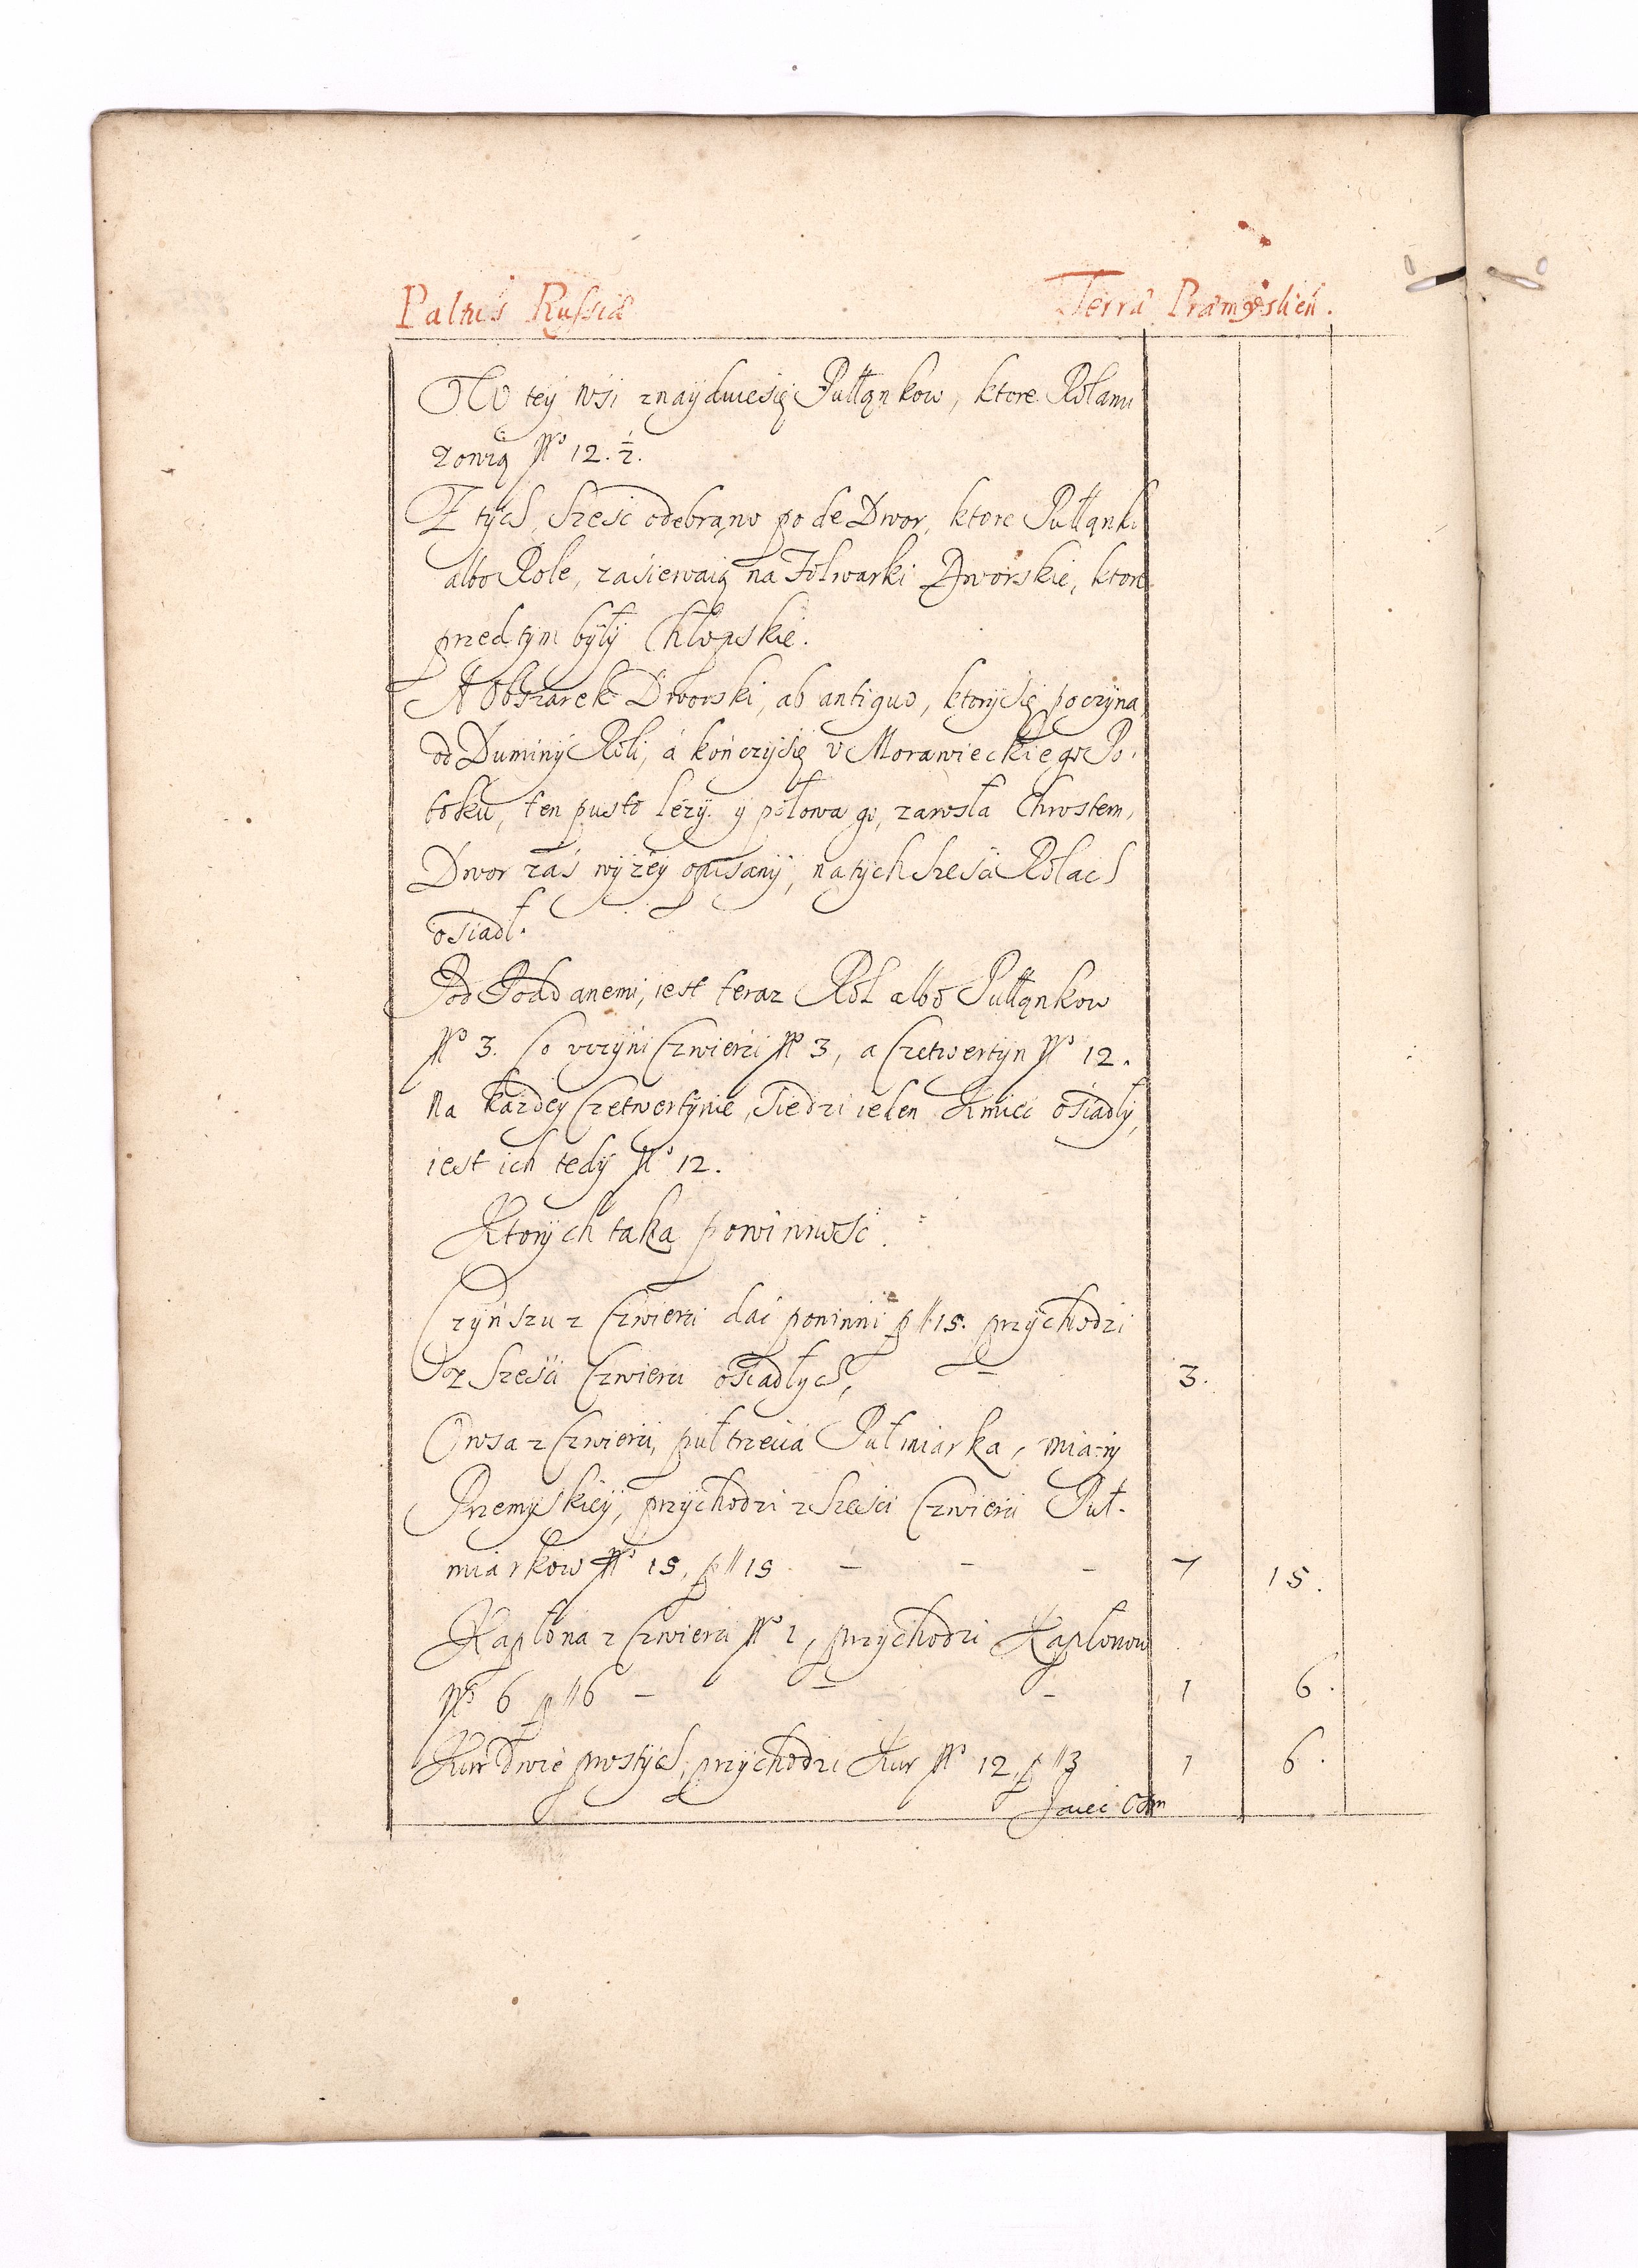 Paltus Russiæ Terra Præmysliēn.
W tey wsi znayduie się Pułłankow, ktore Rolami
zowią No 12. ½.
Z tych, sześć odebrano pode Dwor, ktore Pułłanki
albo Role, zasiewaią na Folwarki Dworskie, ktore
przed tym były Chłopskie.
A Obszarek Dworski, ab antiquo, ktory się poczyna
od Duminy Roli, á kończy się v Morawieckiego Po-
toku, ten pusto leży. y połowa go, zarosła Chrostem,
Dwor zaś wyżey opisany, na tych sześci Rolach
osiadł.
Pod Poddanemi, iest teraz Rol albo Pułłankow
No 3. Co vczyni Czwierci No 3, a Czetwertyn No 12.
Na każdey Czetwertynie, siedzi ieden Kmieć osiadły,
iest ich tedy No 12.
Ktorych taka powinność.
Czynszu z Czwierci dać powinni p 11 15. przychodzi
z sześci Czwierci osiadłych, – 3.
Owsa z Czwierci, pułtrzecia Pułmiarka, miary
Przemyskiey, przychodzi z sześci Czwierci Puł-
miarkow No 15, p 11 15 – – – 7 15.
Kapłona z Czwierci No 1, przychodzi Kapłonow
No 6 p 11 6 – – – 1 6.
Kur Dwie prostych, przychodzi Kur No 12, p 11 3 1 6.